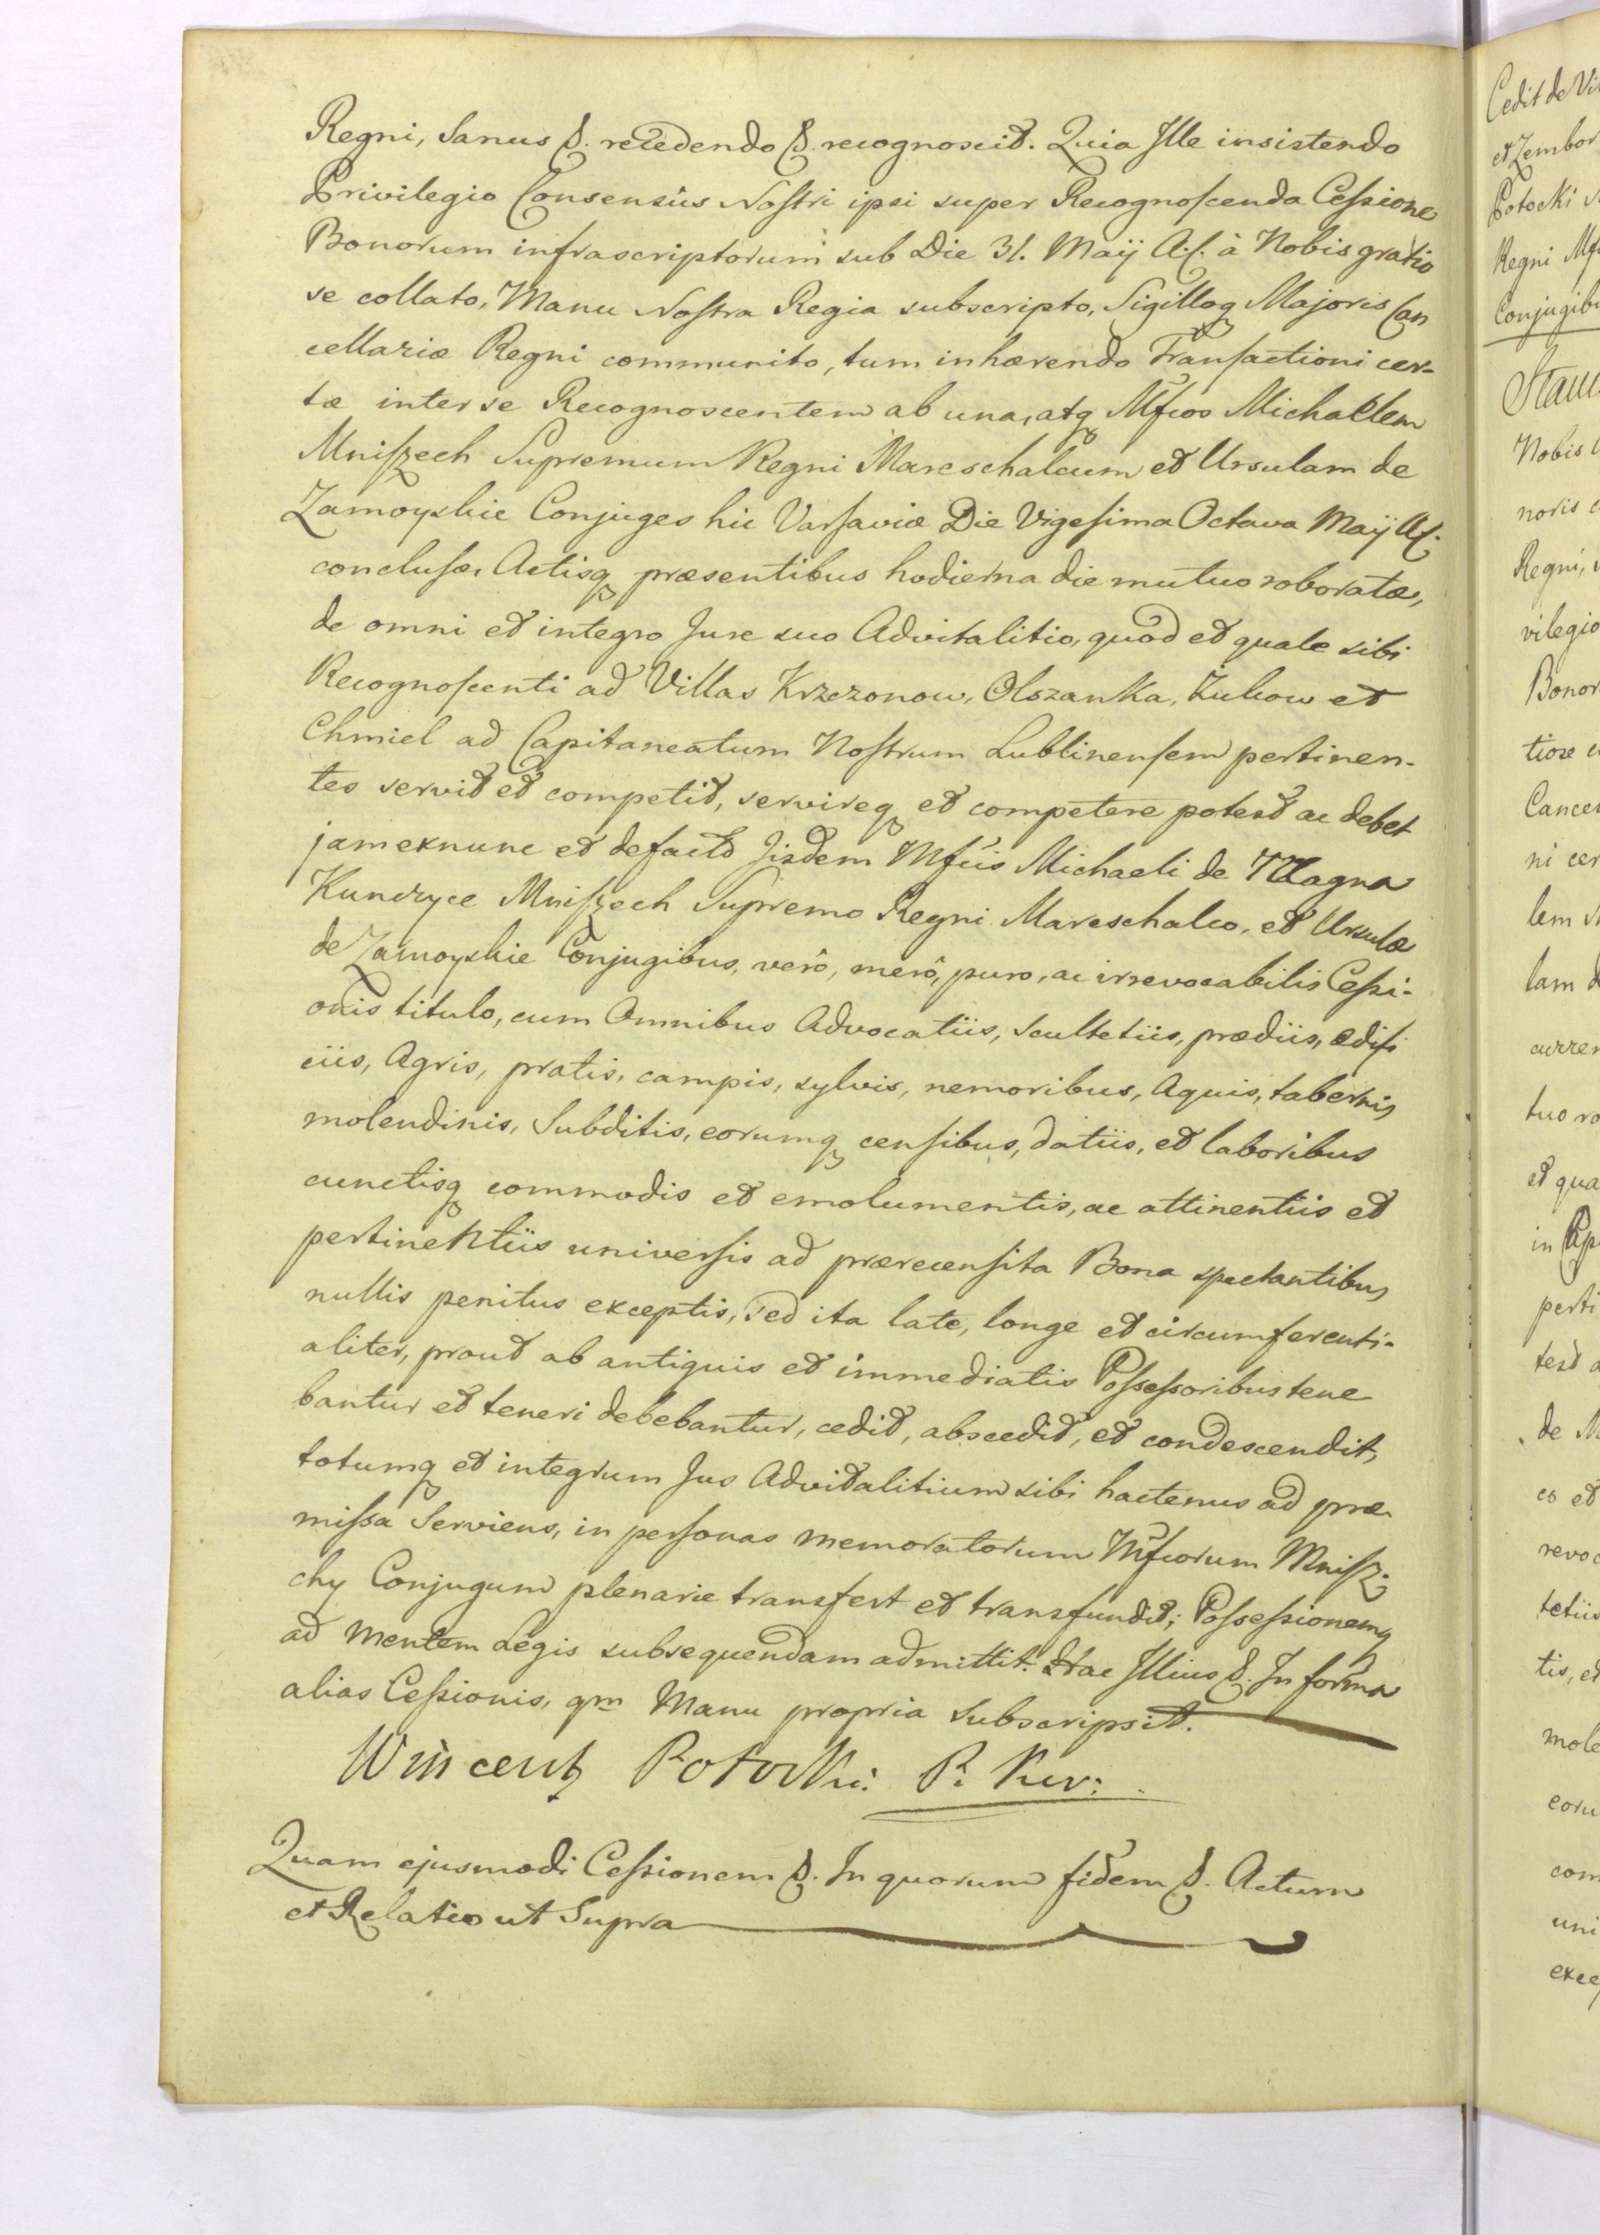 Regni, Sanus &. recedendo &. recognoscit. Quia Ille insistendo
Privilegio Consensûs Nostri ipsi super Recognoscenda Cessione
Bonorum infrascriptorum sub Die 31. Maÿ A.c. à Nobis gratio
se collato, Manu Nostra Regia subscripto, Sigilloq Majoris Can
cellariæ Regni communito, tum inhærendo Transactioni cer-
tæ inter se Recognoscentem ab una, atq Mfcos Michaëlem
Mniszech Supremum Regni Mareschalcum et Ursulam de
Zamoyskie Conjuges hic Varsaviæ Die Vigesima Octava Maÿ A.c.
conclusæ, Actisq præsentibus hodierna die mutuo roboratæ,
de omni et integro Jure suo Advitalitio, quod et quale sibi
Recognoscenti ad Villas Krzczonow, Olszanka, Żukow et
Chmiel ad Capitaneatum Nostrum Lublinensem pertinen-
tes servit et competit, servireq et competere potest ac debet
jam exnunc et defacto Jisdem Mfcis Michaeli de Magna
Kunczyce Mniszech Supremo Regni Mareschalco, et Ursulæ
de Zamoyskie Conjugibus, verô, merô, puro, ac irrevocabilis Cessi-
onis titulo, cum Omnibus Advocatiis, Scultetiis, prædiis, ædifi
ciis, Agris, pratis, campis, sylvis, nemoribus, Aquis, tabernis
molendinis, Subditis, eorumq censibus, datiis, et laboribus
cunctisq commodis et emolumentis, ac attinentiis et
pertinentiis universis ad prærecensita Bona spectantibus
nullis penitus exceptis, sed ita late, longe et circumferenti-
aliter, prout ab antiquis et immediatis Possessoribus tene
bantur et teneri debebantur, cedit, abscedit, et condescendit,
totumq et integrum Jus Advitalitium sibi hactenus ad præ-
missa Serviens, in personas memoratorum Mfcorum Mnisz-
chy Conjugum plenarie transfert et transfundit; Possessionemq
ad mentem Legis subsequendam admittit. Hac Illius &. In forma
alias Cessionis, qm Manu propria Subscripsit.
Wincenty Potocki P. Kor:
Quam ejusmodi Cessionem &. In quorum fidem &. Actum
et Relatio ut Supra
Cedit de
et Zembor
Potocki
Regni
Conjugib
Nobis
noris
Regni,
vilegio
Bonor
tiose
Cancer
ni cer
lem
lam
curren
tuo ro
et qua
in
perti
test
de
es et
revoc
tetiis
tis, et
mole
eoru
com
uni
exce